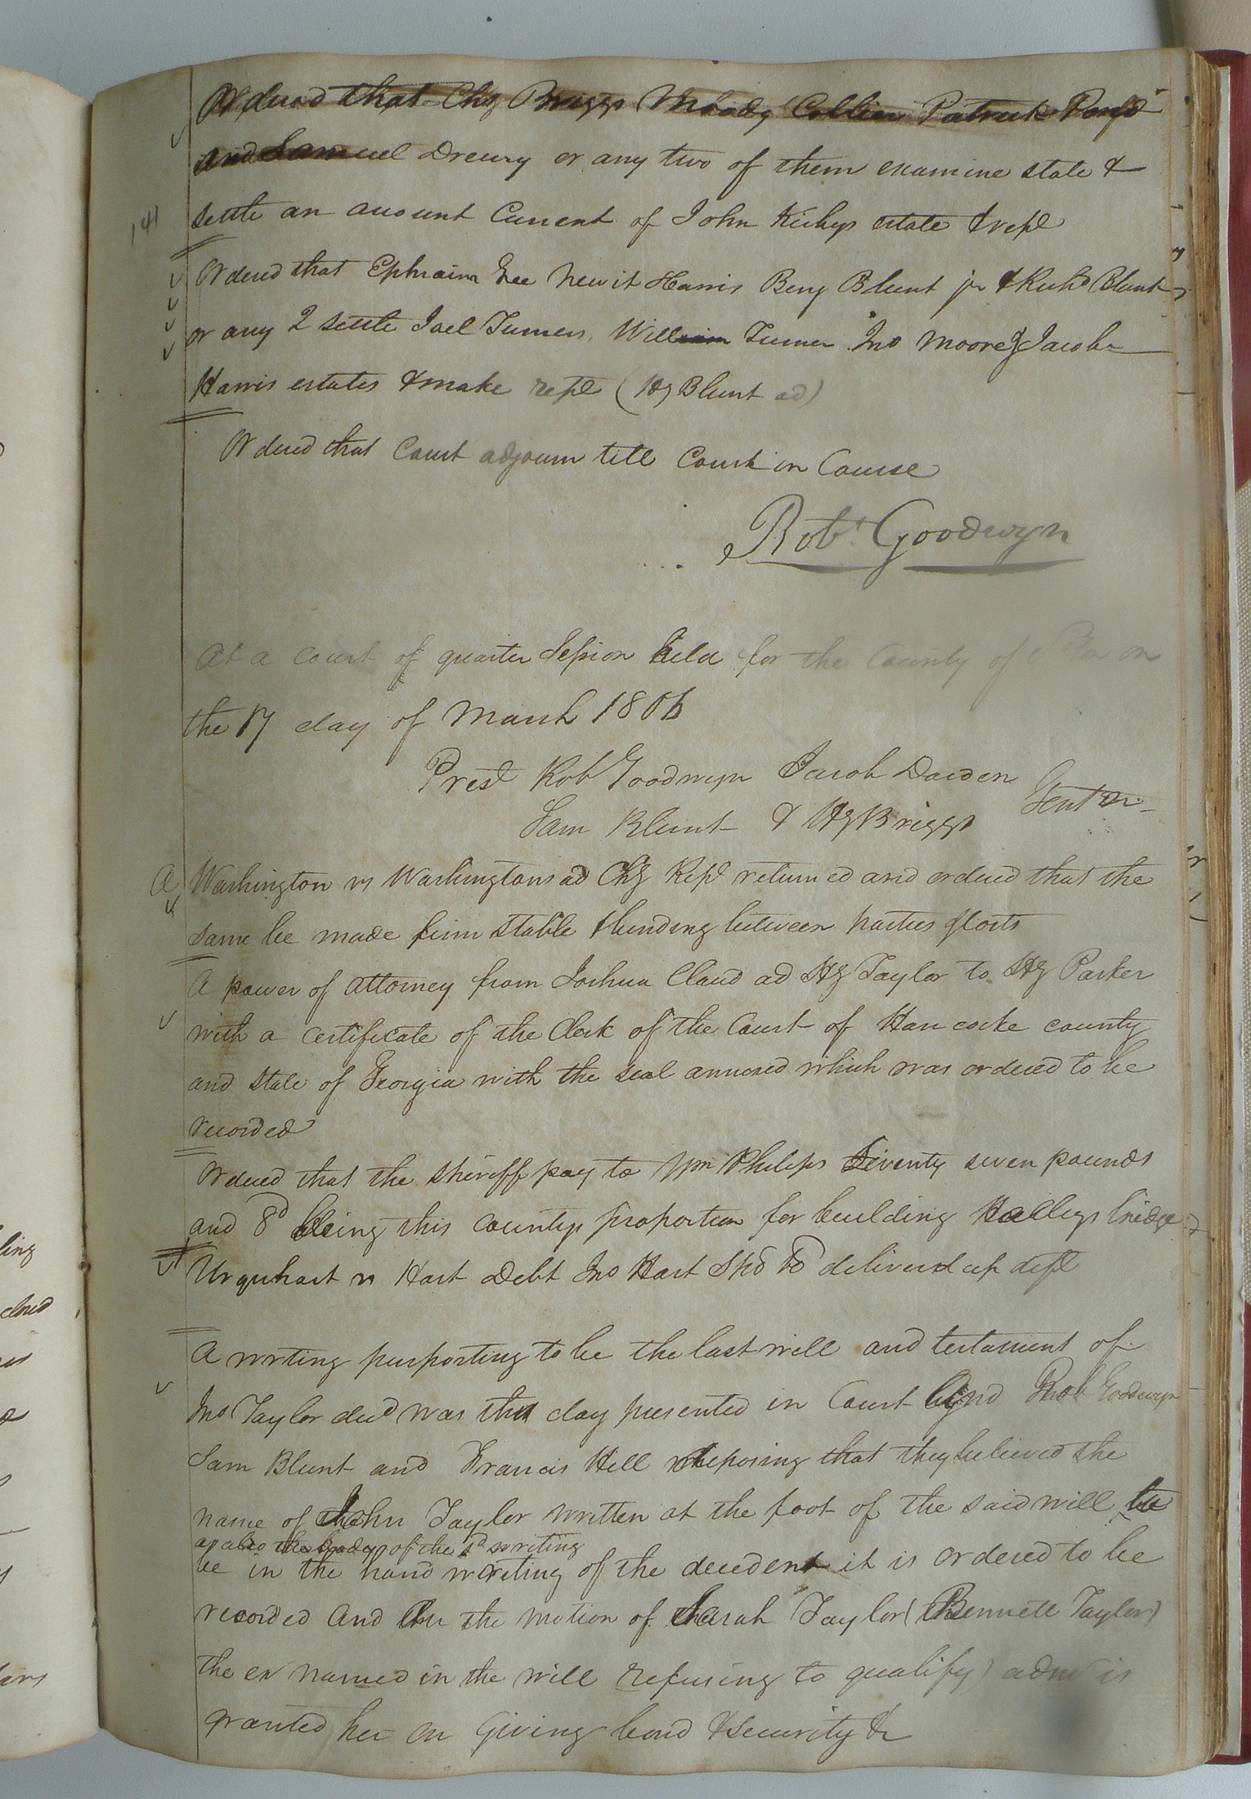 Ordered that Chs Briggs Moody Collier Patrick Pond
and Samuel Drewry or any two of them examine state &
settle an account Current of John Kirbys estate & rept
141
Ordered that Ephraim Gee Newit Harris Benj Blunt jr & Richd Blunt
or any 2 settle Joel Turners, William Turner Jno Moore & Jacob
Harris estates & make rept (Hy Blunt ad)
Ordered that Court adjourn till Court in Course
Robt Goodwyn
At a Court of quarter Session held for the County of on
the 17 day of March 1806
Prest Rob Goodwyn Jacob Darden
Gentn
Sam Blunt & Hy Briggs
a
Washington vs Washingtons ad Chy Rept returned and ordered that the
same be made firm stable & binding between parties & costs
A power of attorney from Joshua Claud ad Hy Taylor to Hy Parker
with a certificate of the Clerk of the Court of Hancocke county
and state of Georgia with the seal annexed which was ordered to be
recorded
Ordered that the sheriff pay to Wm Philips Seventy seven pounds
and 8d being this countys proportion for building Hallys bridge
Urquhart vs Hart Debt Jno Hart delivered up deft
A writing purporting to be the last will and testament of
Jno Taylor decd was this day presented in Court and Rob Goodwyn
Sam Blunt and Francis Hill deposing that they believed the
name of John Taylor written at the foot of the said will
as also the body of the sd writing
be in the hand writing of the decedent it is ordered to be
recorded and on the motion of Sarah Taylor (Bennett Taylor)
the ex named in the will refusing to qualify) adm is
granted her on Giving bond & security &
ling